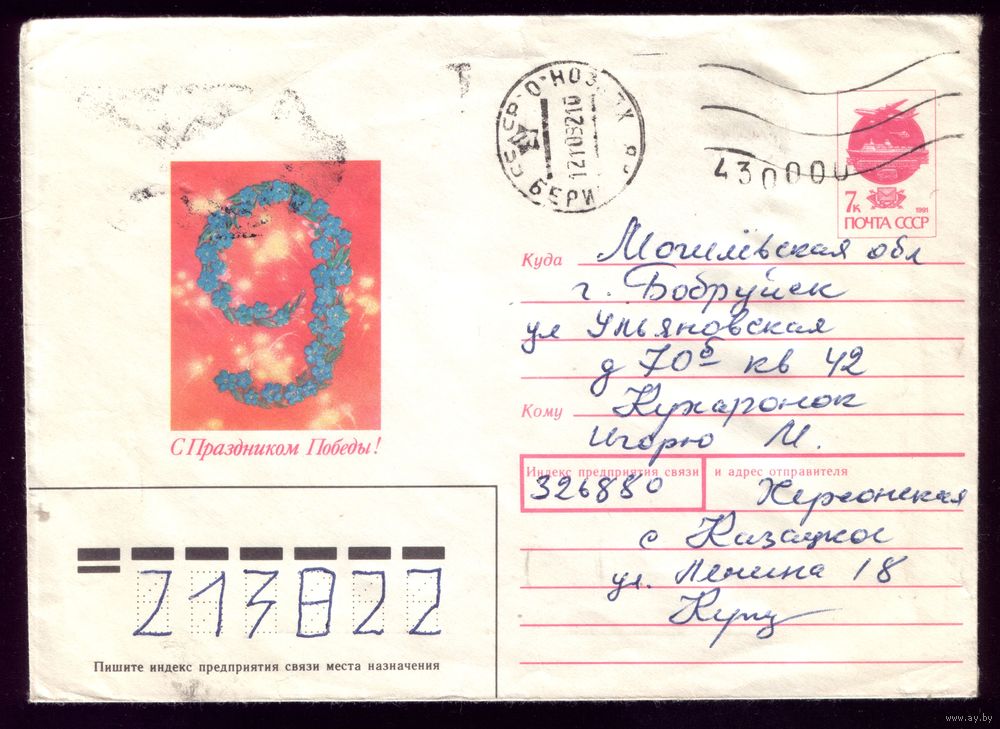 430000
7к
1991
ПОЧТА СССР
Куда Могилёвская обл
г. Бобруйск
ул Ульяновская
д 70б кв 42
Кому Кухаронок
Игорю М.
С Праздником Победы!
Индекс предприятия связи и адрес отправителя
326880 Херсонская
с Казацкое
ул. Ленина 18
Купц
213822
Пишите индекс предприятия связи места назначения
www.ay.by